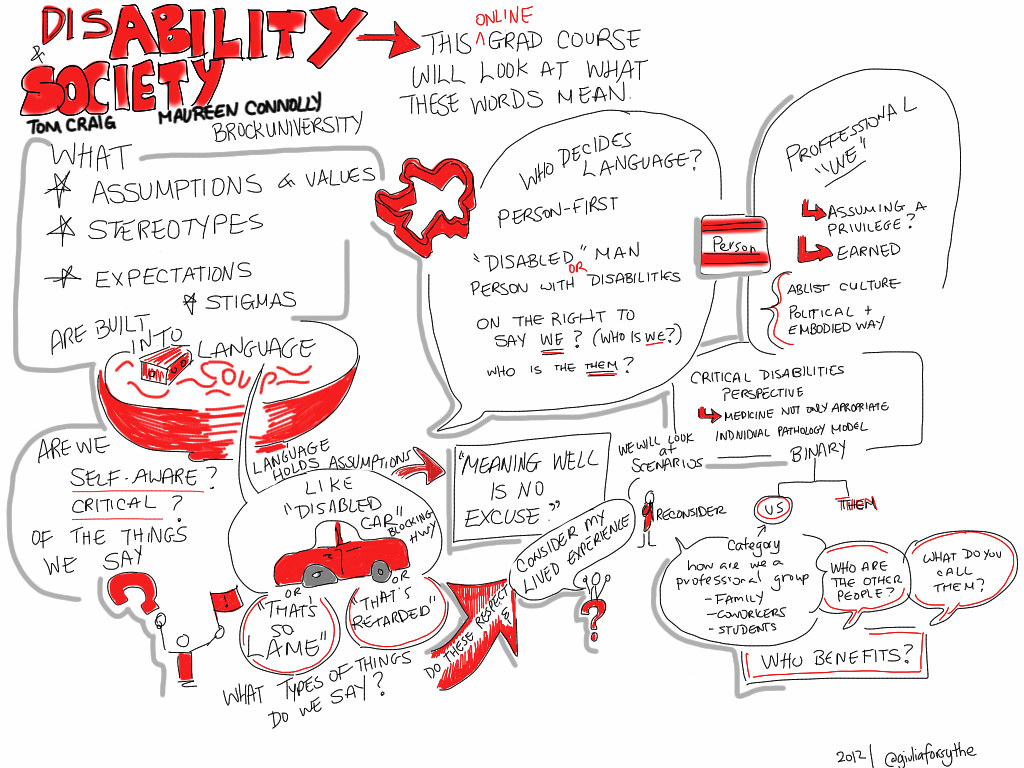 DISABILITY
&
SOCIETY
TOM CRAIG MAUREEN CONNOLLY
BROCKUNIVERSITY
ONLINE
THIS ^ GRAD COURSE
WILL LOOK AT WHAT
THESE WORDS MEAN.
WHAT
ASSUMPTIONS & VALUES
STEREOTYPES
EXPECTATIONS
STIGMAS
ARE BUILT
INTO
LANGUAGE
SOUP
ARE WE
SELF-AWARE?
CRITICAL?
OF THE THINGS
WE SAY
LANGUAGE
HOLDS ASSUMPTIONS
LIKE
"DISABLED
CAR"
BLOCKING
HWY
OR
"THAT'S
SO
LAME"
OR
"THAT'S
RETARDED"
WHAT TYPES OF THINGS
DO WE SAY?
DO THESE RESPECT
?
"MEANING WELL
IS NO
EXCUSE."
CONSIDER MY
LIVED EXPERIENCE
WHO DECIDES
LANGUAGE?
PERSON-FIRST
"DISABLED" MAN
OR
PERSON WITH DISABILITIES
ON THE RIGHT TO
SAY WE? (WHO IS WE?)
WHO IS THE THEM?
Person
PROFFESSIONAL
"WE"
ASSUMING A
PRIVILEGE?
EARNED
ABLIST CULTURE
POLITICAL +
EMBODIED WAY
CRITICAL DISABILITIES
PERSPECTIVE
MEDICINE NOT ONLY APROPRIATE
INDIVIDUAL PATHOLOGY MODEL
WE WILL LOOK
at
SCENARIOS
RECONSIDER
BINARY
US
THEM
Category
how are we a
professional group
- FAMILY
- COWORKERS
- STUDENTS
WHO ARE
THE OTHER
PEOPLE?
WHAT DO YOU
CALL
THEM?
WHO BENEFITS?
2012 | @giuliaforsythe